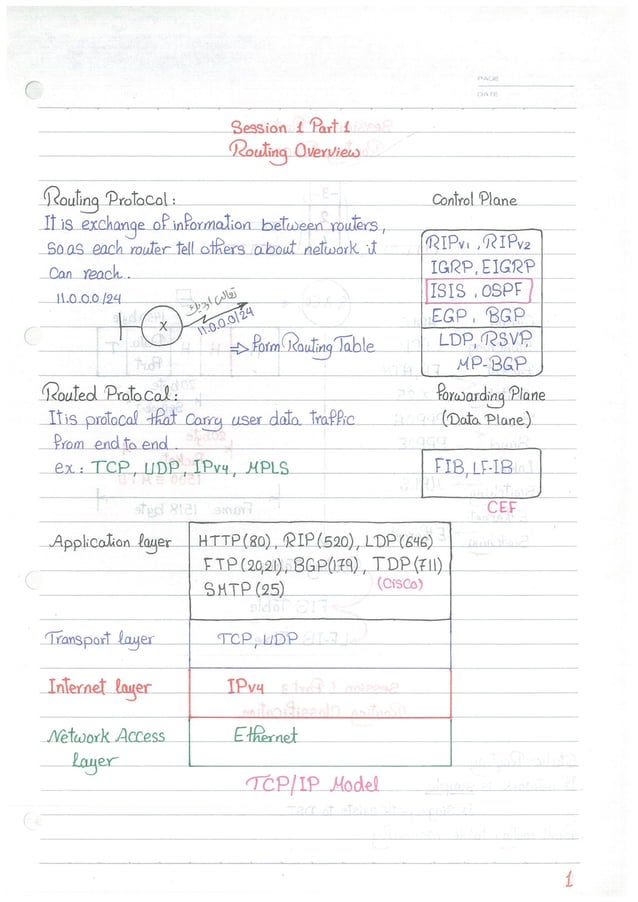 PAGE
DATE
Session 1 Part 1
Routing Overview
Routing Protocol:
It is exchange of information between routers,
So as each router tell others about network it
Can reach.
11.0.0.0/24
X
11.0.0.0/24
⇒ Form Routing Table
Control Plane
RIPv1, RIPv2
IGRP, EIGRP
ISIS, OSPF
EGP, BGP
LDP, RSVP,
MP-BGP
Routed Protocal:
It is protocal that carry user data traffic
From end to end.
ex: TCP, UDP, IPv4, MPLS
Forwarding Plane
(Data Plane)
FIB, LF-IB
CEF
Application layer
HTTP(80), RIP(520), LDP(646)
FTP(20,21), BGP(179), TDP(711)
SMTP(25)
(Cisco)
Transport layer
TCP, UDP
Internet layer
IPv4
Network Access
layer
Ethernet
TCP/IP Model
1